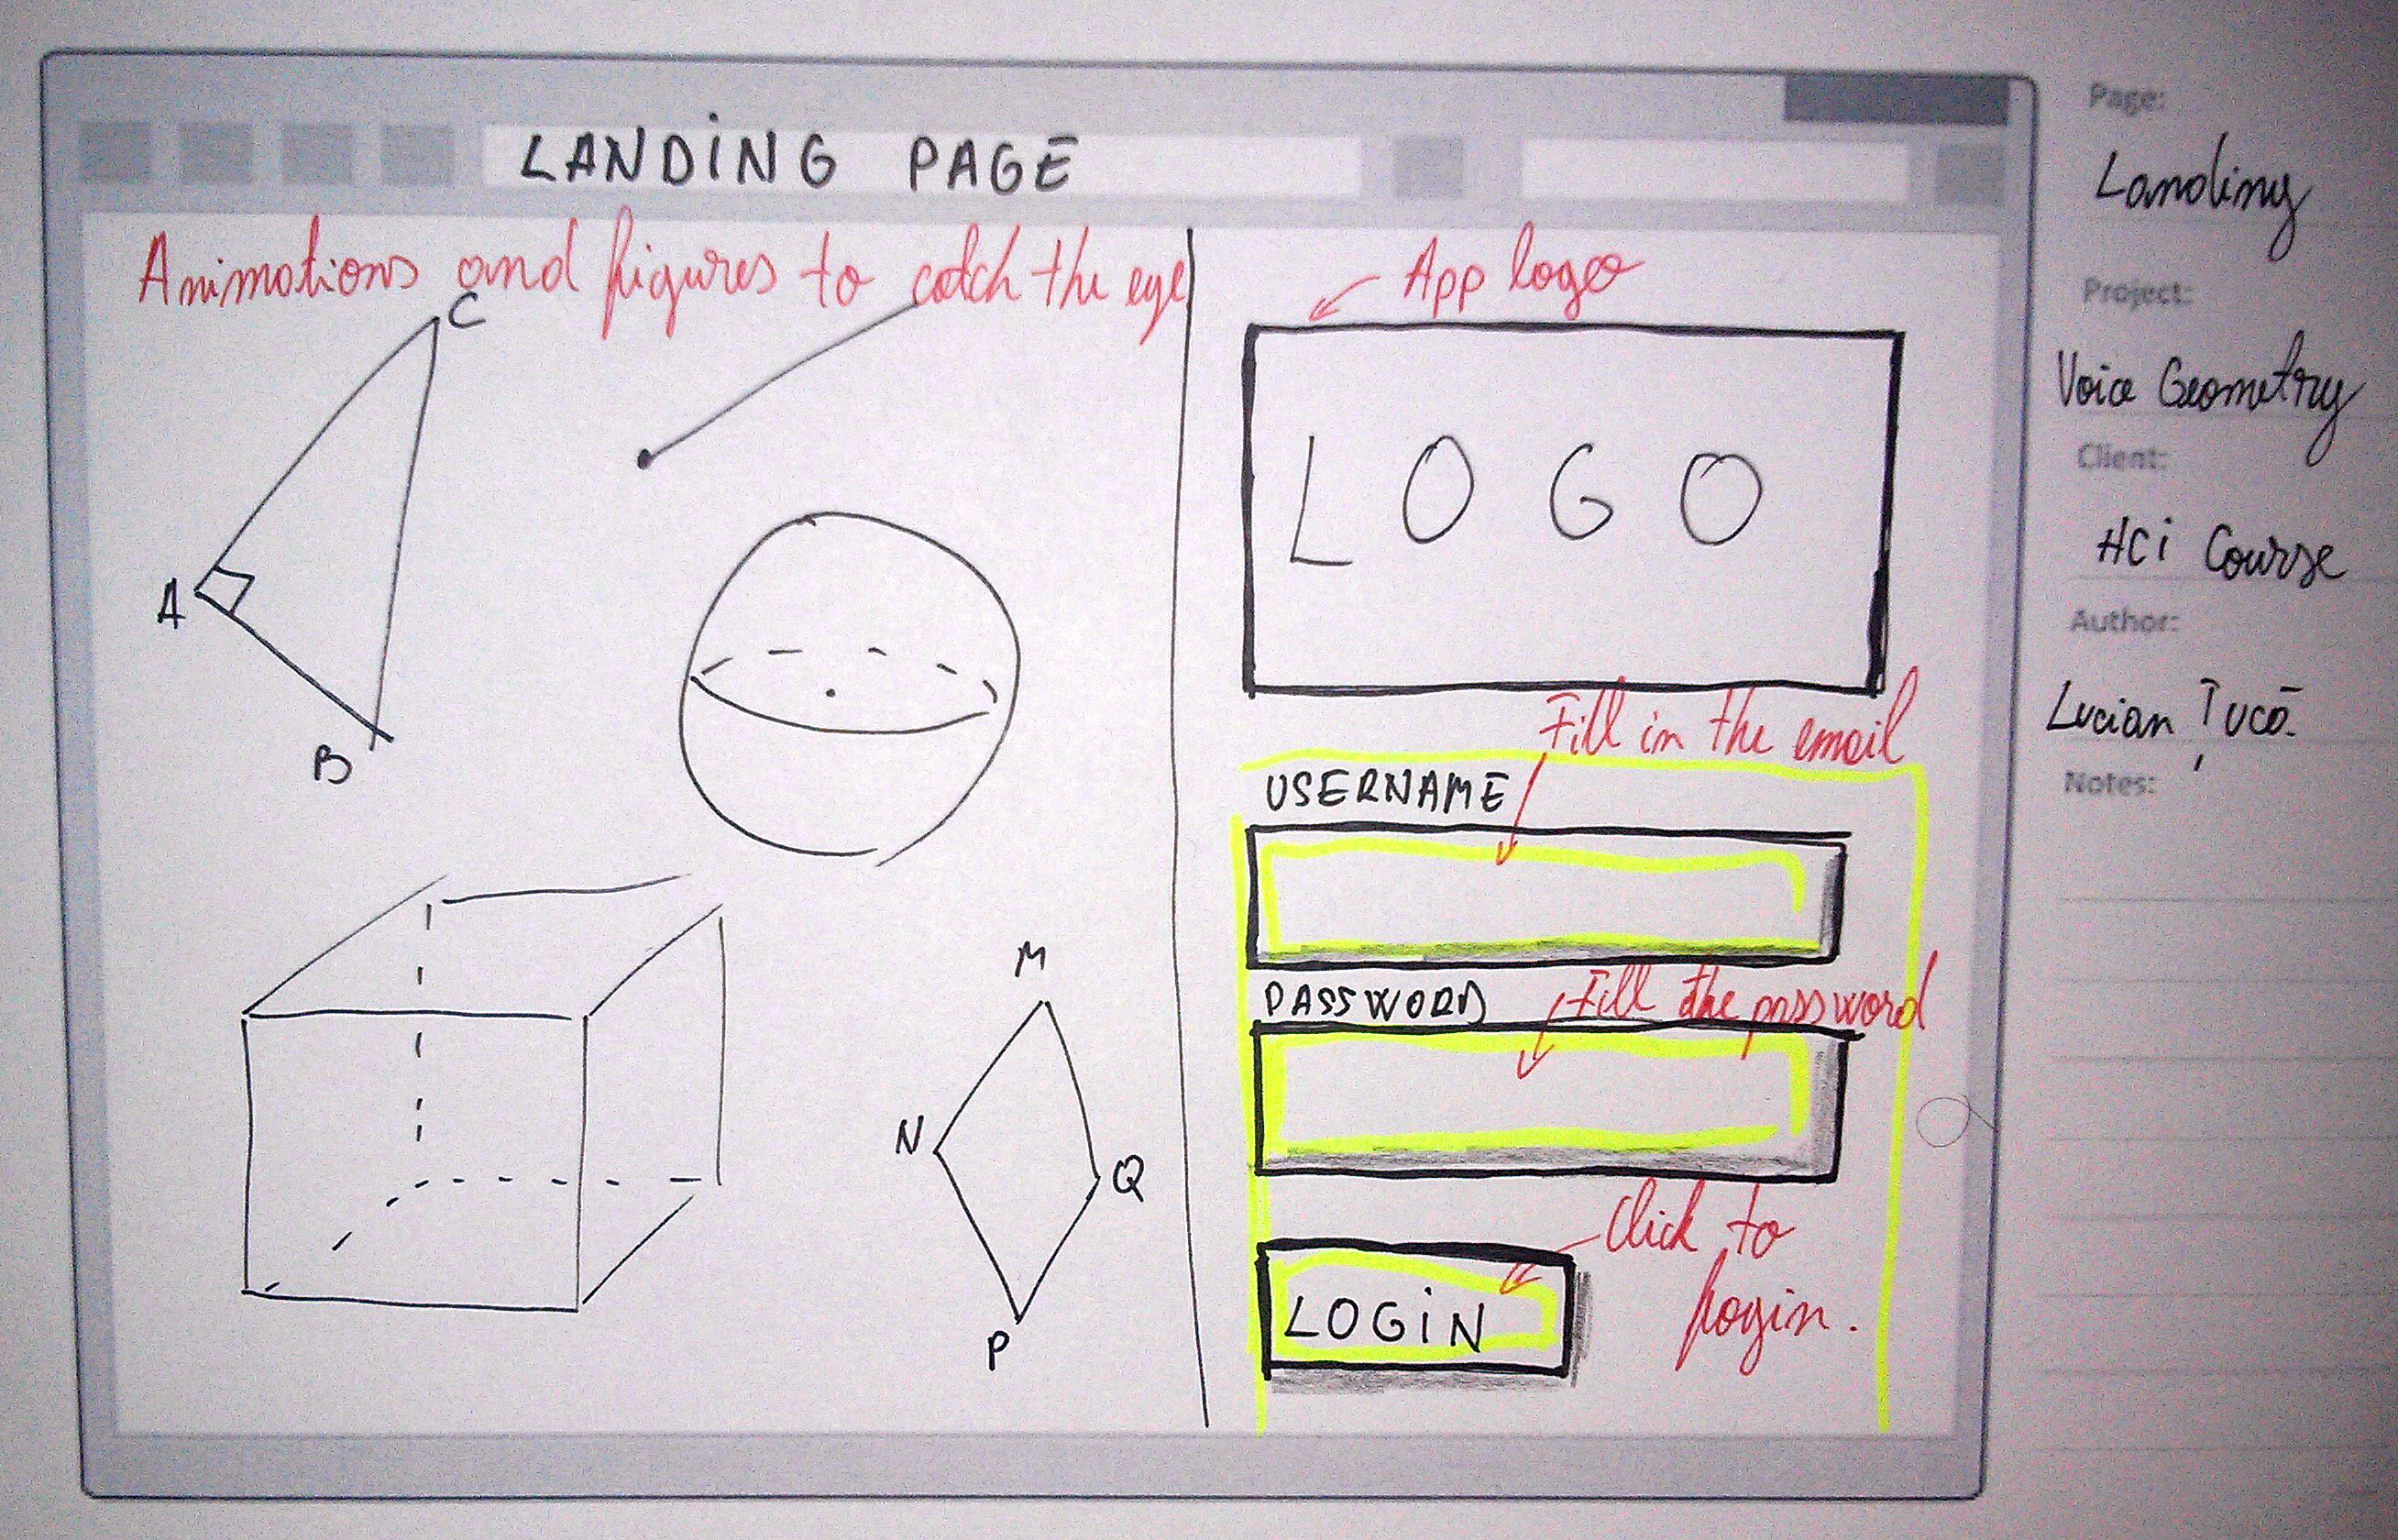 LANDING PAGE
Animations and figures to catch the eye
C
A
B
M
N
Q
P
App logo
LOGO
Fill in the email
USERNAME
PASSWORD
Fill the password
LOGIN
Click to
login.
Page:
Landing
Project:
Voice Geometry
Client:
HCI Course
Author:
Lucian Țucă
Notes: